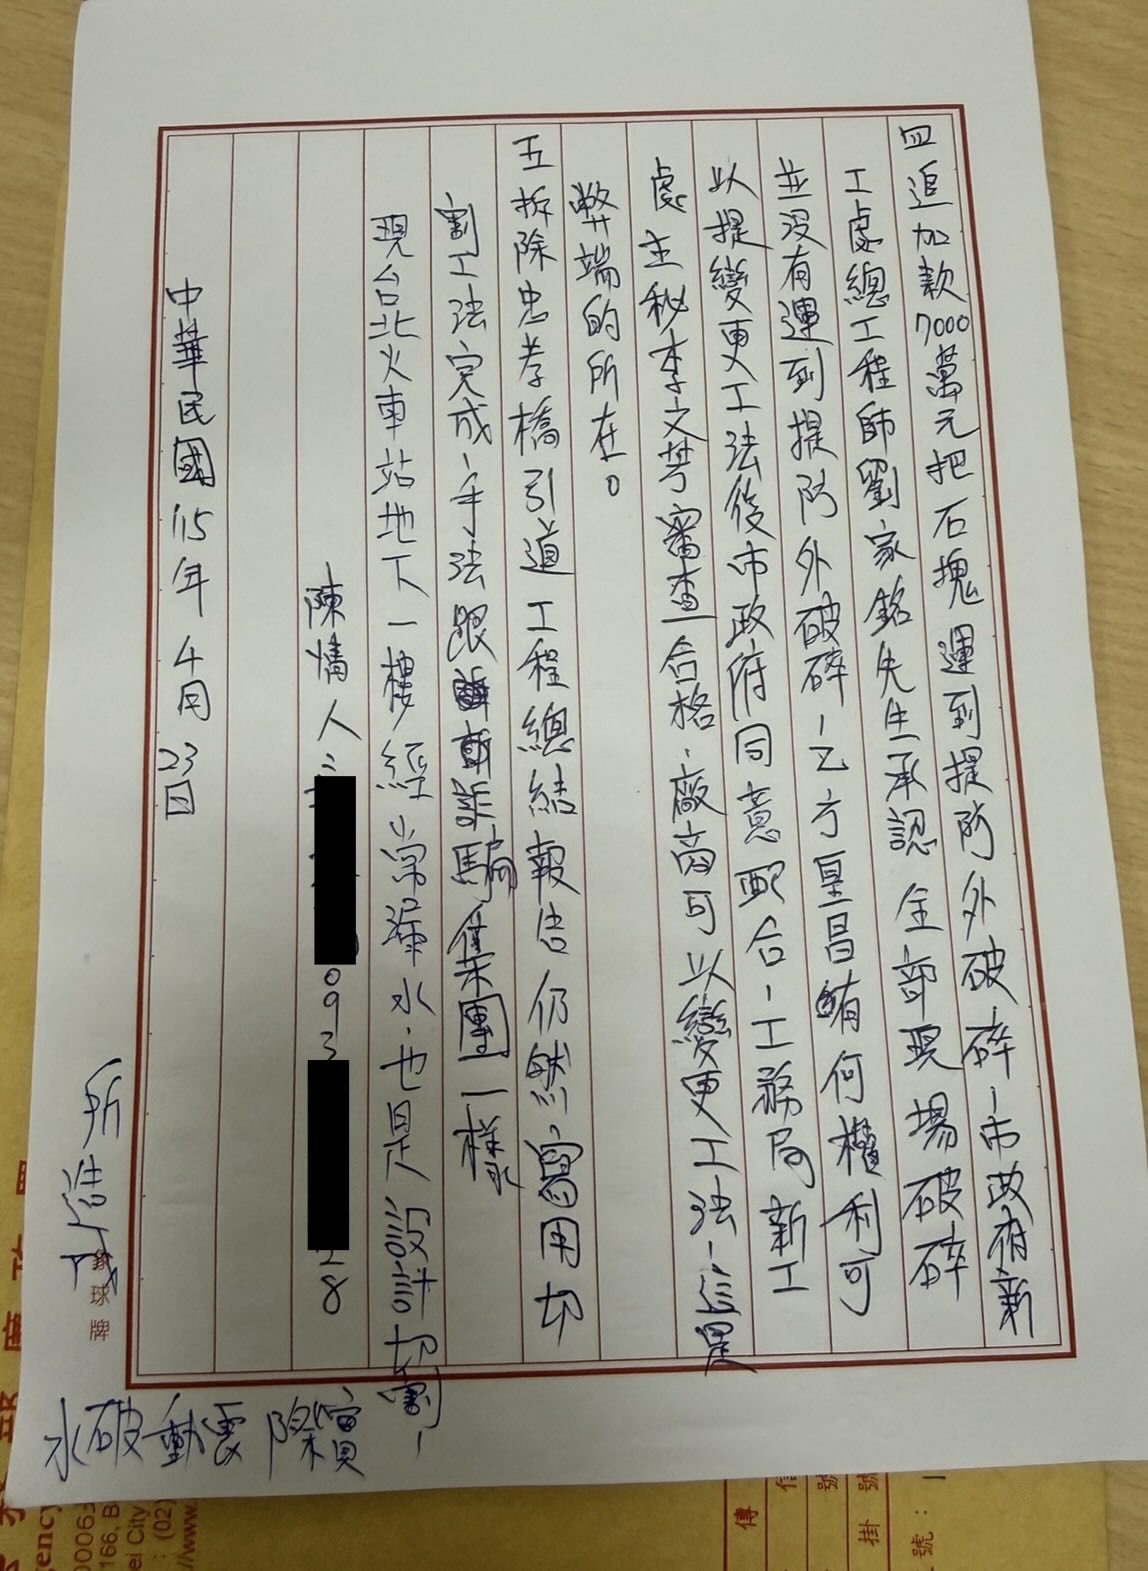 四追加款7000萬元把石塊運到提防外破碎、市政府新
工處總工程師劉家銘先生承認全部現場破碎
並没有運到提防外破碎、乙方皇昌有何權利可
以提變更工法後市政府同意配合、工務局新工
處主秘李文芩審查合格、廠商可以變更工法、這是
弊端的所在。
五拆除忠孝橋引道工程總結報告仍然寫用切
割工法完成、手法跟詐騙集團一樣
現台北火車站地下一樓經常漏水、也是設計切割、
陳情人：
093
28
中華民國115年4月23日
所造成
水破動震
錦球牌
傳
信
掛號
號：
166, B
ei City
: (02)
//www.